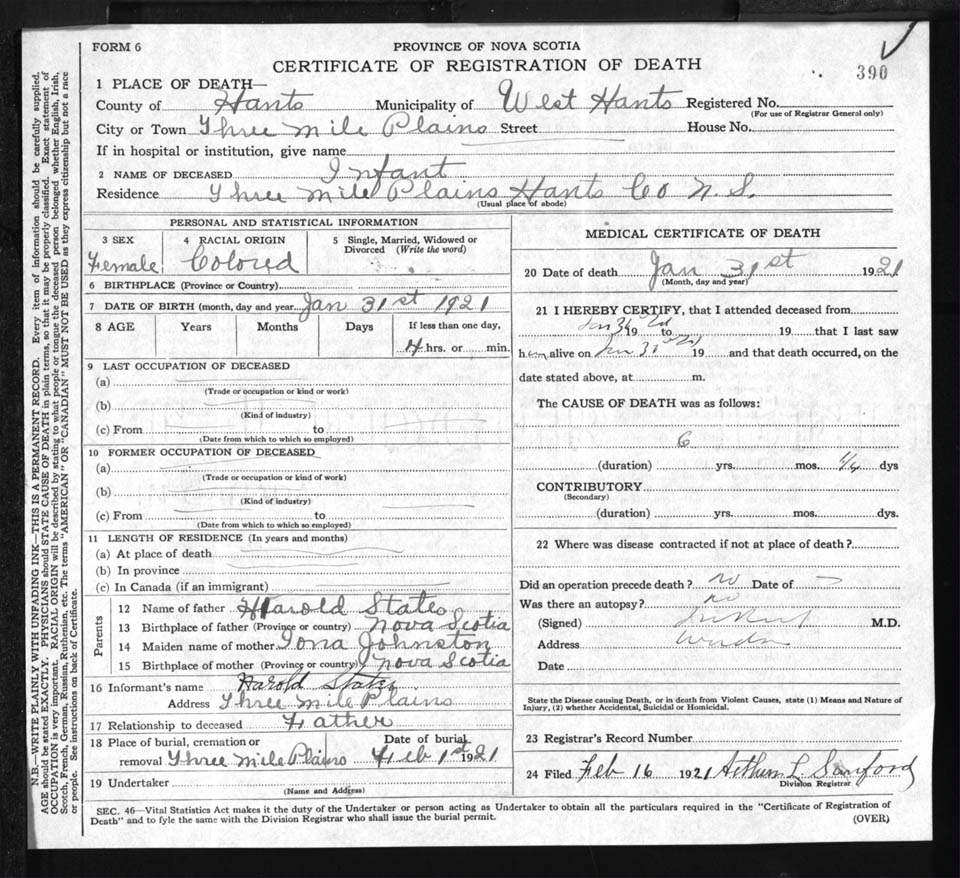 FORM 6
PROVINCE OF NOVA SCOTIA
CERTIFICATE OF REGISTRATION OF DEATH
390
1 PLACE OF DEATH—
County of Hants Municipality of West Hants Registered No.
(For use of Registrar General only)
City or Town Three Mile Plains Street House No.
If in hospital or institution, give name
2 NAME OF DECEASED Infant
Residence Three Mile Plains Hants Co N. S.
(Usual place of abode)
PERSONAL AND STATISTICAL INFORMATION
3 SEX 4 RACIAL ORIGIN 5 Single, Married, Widowed or
Divorced (Write the word)
Female Colored
6 BIRTHPLACE (Province or Country)
7 DATE OF BIRTH (month, day and year) Jan 31st 1921
8 AGE Years Months Days If less than one day,
4 hrs. or min.
9 LAST OCCUPATION OF DECEASED
(a)
(Trade or occupation or kind or work)
(b)
(Kind of industry)
(c) From to
(Date from which to which so employed)
10 FORMER OCCUPATION OF DECEASED
(a)
(Trade or occupation or kind of work)
(b)
(Kind of industry)
(c) From to
(Date from which to which so employed)
11 LENGTH OF RESIDENCE (In years and months)
(a) At place of death
(b) In province
(c) In Canada (if an immigrant)
Parents
12 Name of father Harold States
13 Birthplace of father (Province or country) Nova Scotia
14 Maiden name of mother Iona Johnston
15 Birthplace of mother (Province or country) Nova Scotia
16 Informant's name Harold States
Address Three Mile Plains
17 Relationship to deceased Father
18 Place of burial, cremation or Date of burial
removal Three Mile Plains Feb 1st 1921
19 Undertaker
(Name and Address)
MEDICAL CERTIFICATE OF DEATH
20 Date of death Jan 31st 1921
(Month, day and year)
21 I HEREBY CERTIFY, that I attended deceased from
19 to 19 that I last saw
h alive on 19 and that death occurred, on the
date stated above, at m.
The CAUSE OF DEATH was as follows:
6
(duration) yrs. mos. dys
CONTRIBUTORY
(Secondary)
(duration) yrs. mos. dys.
22 Where was disease contracted if not at place of death?
Did an operation precede death? no Date of
Was there an autopsy? no
(Signed) M.D.
Address
Date
State the Disease causing Death, or in death from Violent Causes, state (1) Means and Nature of
Injury, (2) whether Accidental, Suicidal or Homicidal.
23 Registrar's Record Number
24 Filed Feb 16 1921 Arthur L Sanford
Division Registrar
SEC. 46—Vital Statistics Act makes it the duty of the Undertaker or person acting as Undertaker to obtain all the particulars required in the "Certificate of Registration of
Death" and to fyle the same with the Division Registrar who shall issue the burial permit.
(OVER)
N.B.—WRITE PLAINLY WITH UNFADING INK—THIS IS A PERMANENT RECORD. Every item of information should be carefully supplied.
AGE should be stated EXACTLY. PHYSICIANS should STATE CAUSE OF DEATH in plain terms, so that it may be properly classified. Exact statement of
OCCUPATION is very important. RACIAL ORIGIN will be described by stating to what people or tongue the deceased person belonged whether English, Irish,
Scotch, French, German, Russian, Ruthenian, etc. The terms "AMERICAN" OR "CANADIAN" MUST NOT BE USED as they express citizenship but not a race
or people. See instructions on back of Certificate.